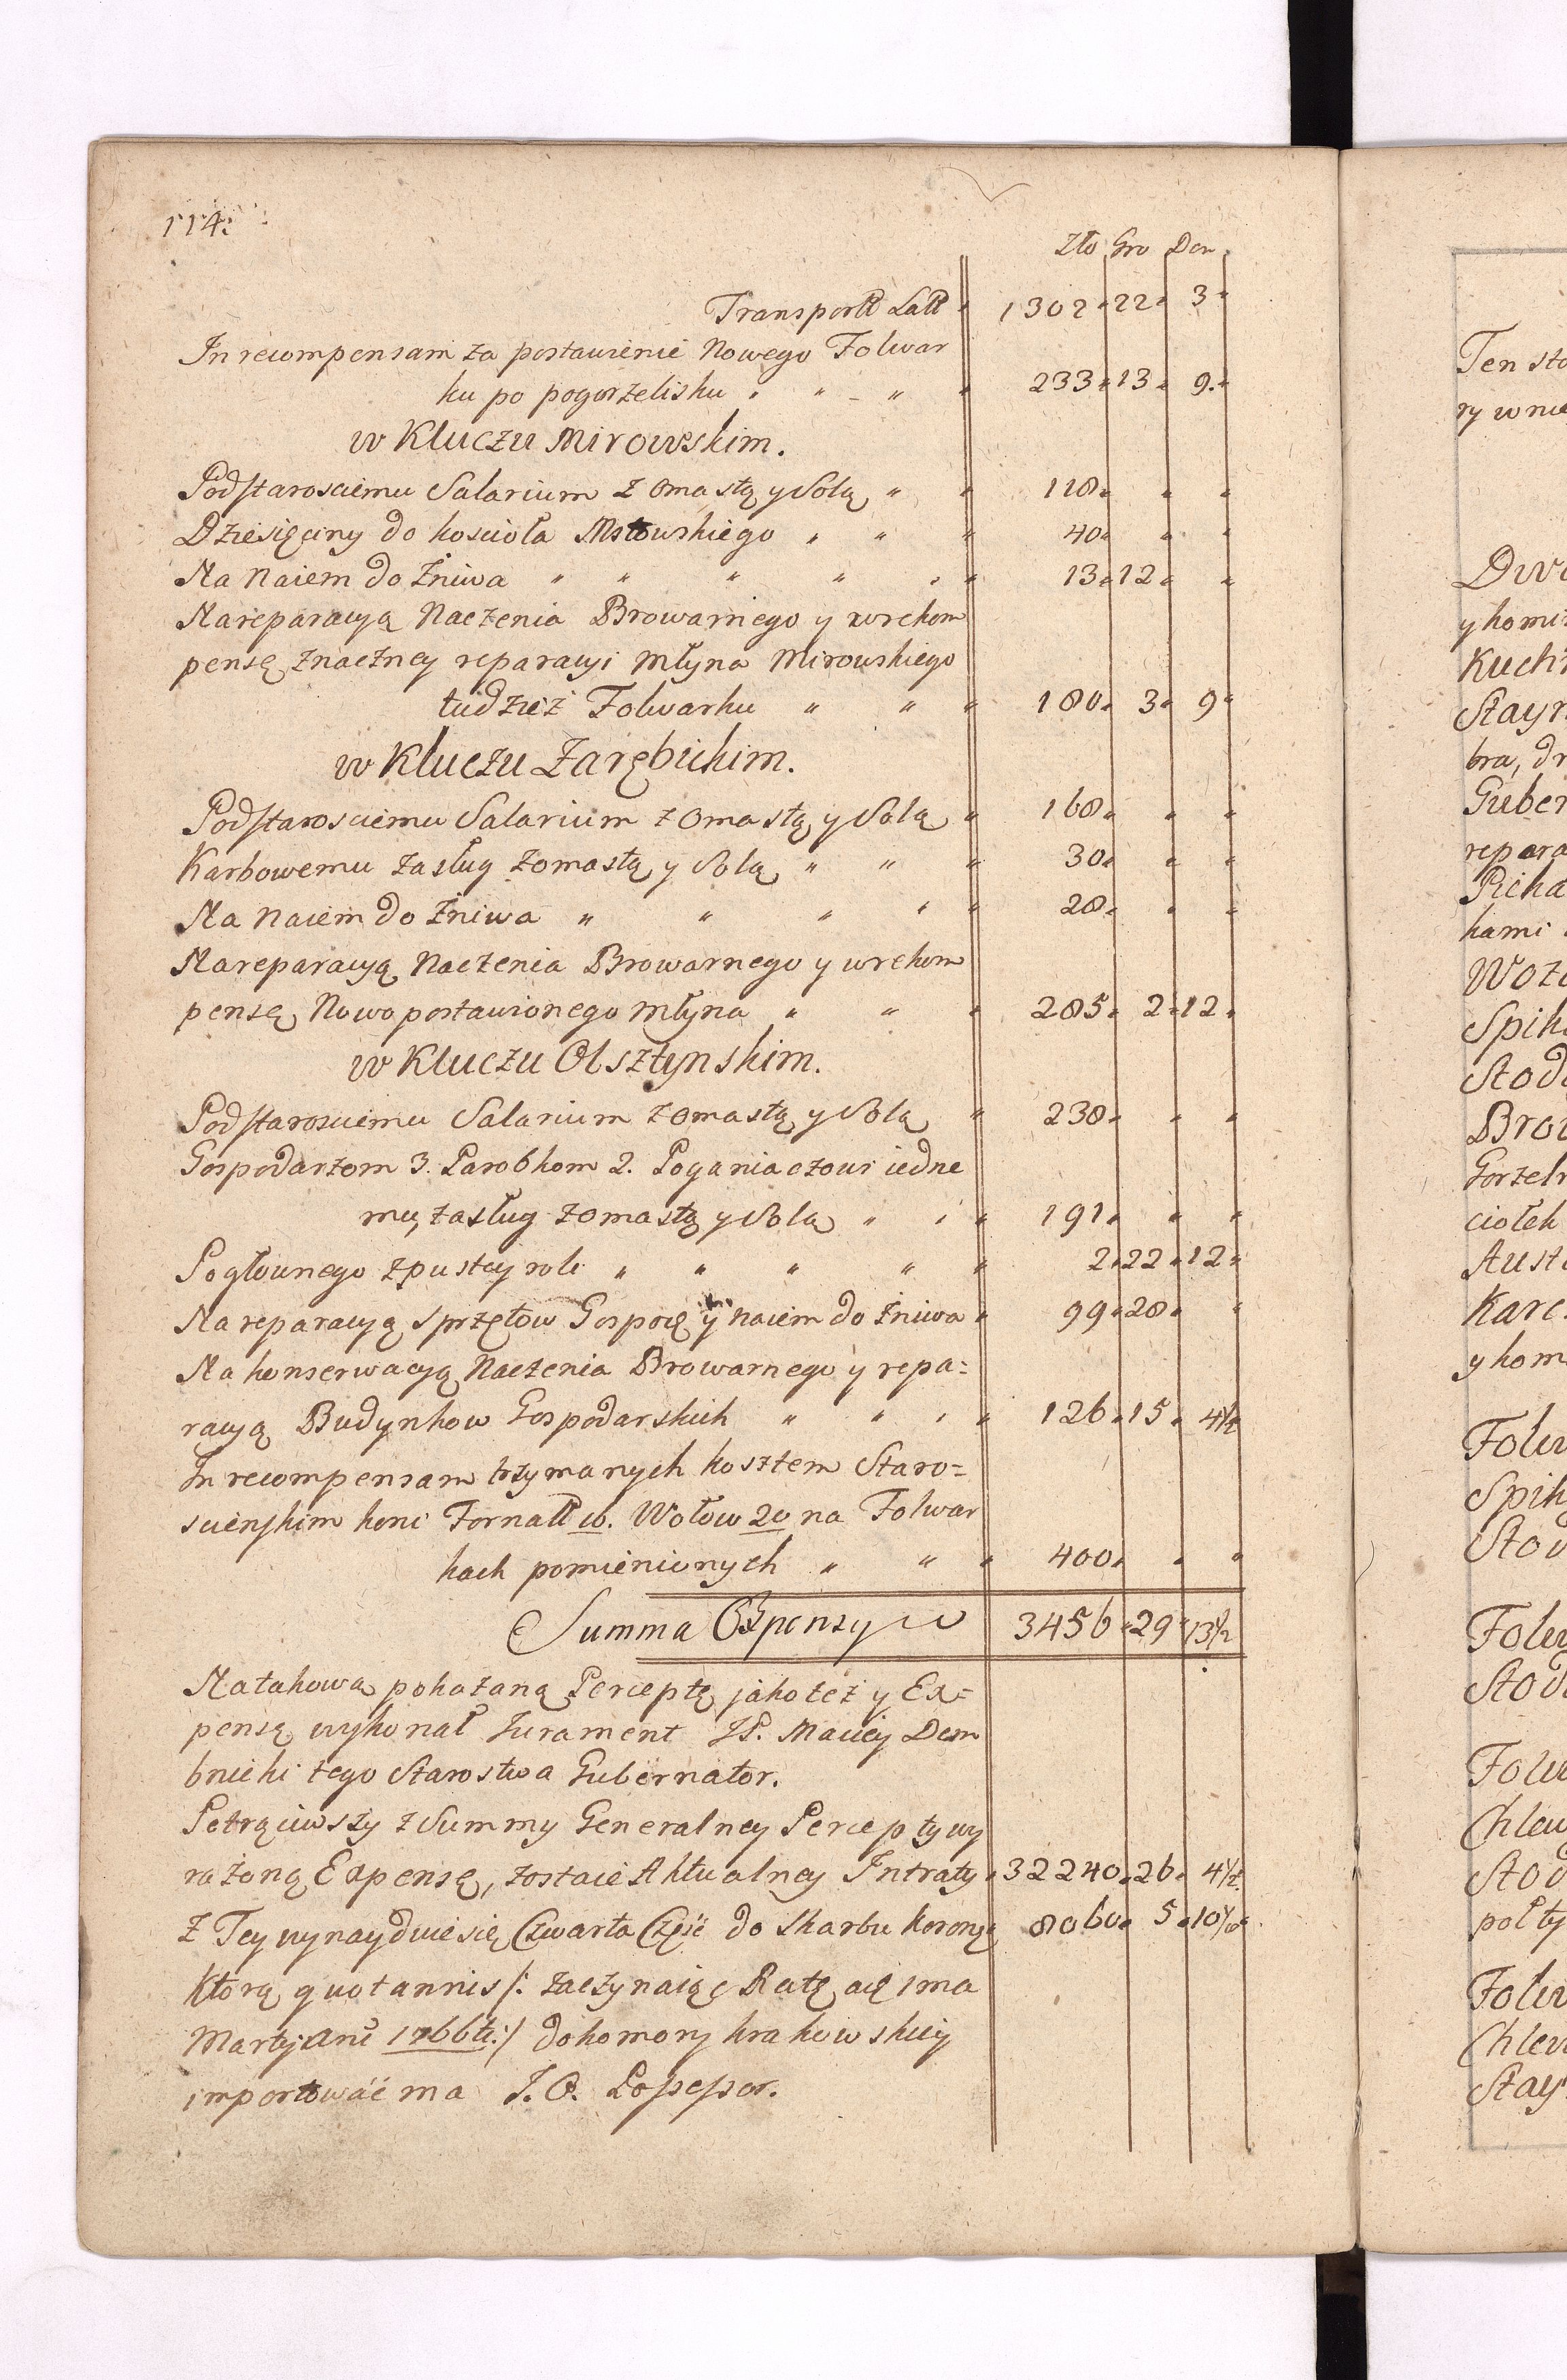 114.
Zło Gro Den
Transportt Latt 1302 22 3
In recompensam za postawienie Nowego Folwar
ku po pogorzelisku 233 13 9
w Kluczu Mirowskim.
Podstarosciemu Salarium z omastą y Solą 118
Dziesięciny do kosciola Mstowskiego 40
Na Naiem do Żniwa 13 12
Na reparacyą Naczenia Browarnego y w rekom
pensę znaczney reparacyi Młyna Mirowskiego
tudziez Folwarku 180 3 9
w Kluczu Zarębickim.
Podstarosciemu Salarium z omastą y Solą 168
Karbowemu zasług z omastą y Solą 30
Na Naiem do Żniwa 28
Na reparacyą Naczenia Browarnego y w rekom
pensę Nowo postawionego Młyna 285 2 12
w Kluczu Olsztynskim.
Podstarosciemu Salarium z omastą y Solą 238
Gospodarzom 3. Parobkom 2. Poganiaczowi iedne
mu, zasług z omastą y Solą 191
Pogłownego z pustey roli 2 22 12
Na reparacyą sprzętow Gospoę y naiem do Żniwa 99 28
Na konserwacyą Naczenia Browarnego y repa=
racyą Budynkow Gospodarskich 126 15 4½
In recompensam trzymanych kosztem Staro=
scienskim koni Fornatt 10. Wołow 20 na Folwar
kach pomienionych 400
Summa Expensy 3456 29 13½
Na takową pokazaną Perceptę jako też y Ex=
pensę wykonał Jurament JP. Maciey Dem
bnicki tego Starostwa Gubernator.
Potrąciwszy z Summy Generalney Percepty wy
rażoną Expensę, zostaie Aktualney Intraty 32240 26 4½
Z Tey wynaydzie się Czwarta Częsć do Skarbu Koronę 8060 5 10⅛
Ktorą quotannis /: zaczynaiąc Ratę a 1ma
Martij anni 1766ti :/ do komory krakowskiey
importować ma J. O. Possessor.
Ten sta
ry w nie
Dwo
y komi
Kuch
Stayn
bra, dr
Guber
repara
Picka
kami
Woz
Spik
Stod
Brow
Gorzel
ciołek
Aust
Karc
y kom
Folw
Spik
Stod
Folw
Stod
Folw
Chlew
Stod
poł ty
Folw
Chlew
Stay